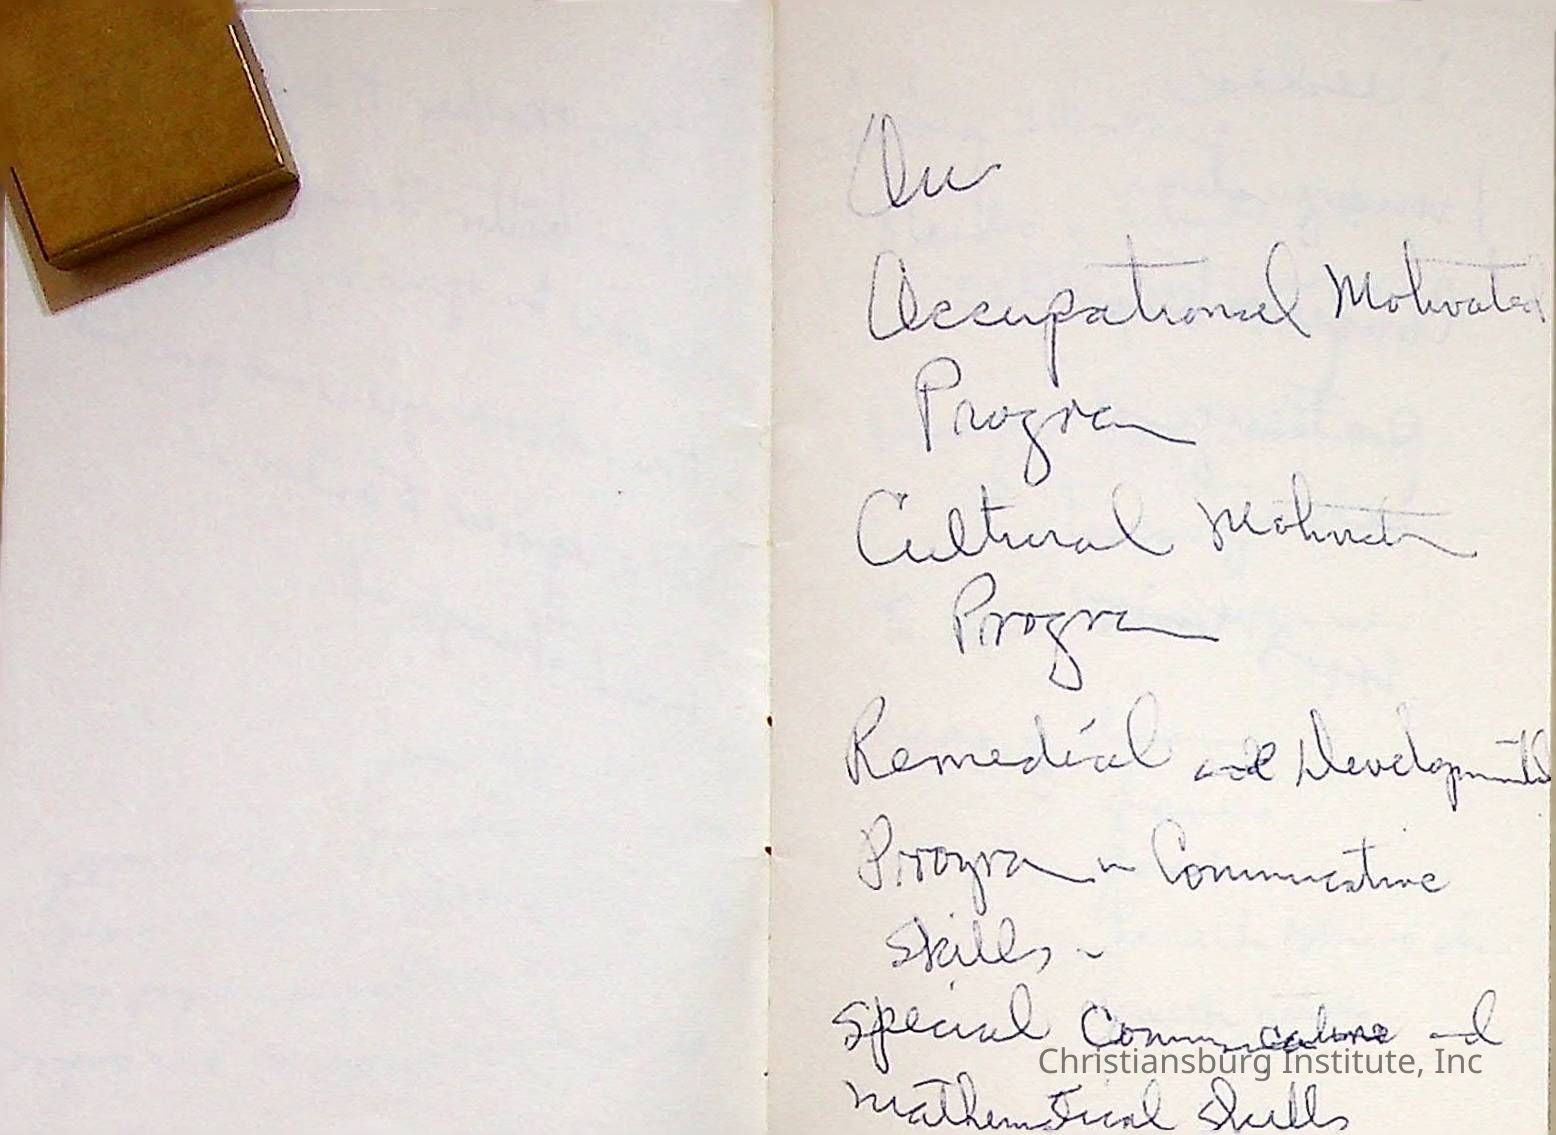 An
Occupational Motivated
Program
Cultural Motivation
Program
Remedial and Developmental
Program in Communicative
Skills -
Special Communicative and
Mathematical Skills
Christiansburg Institute, Inc